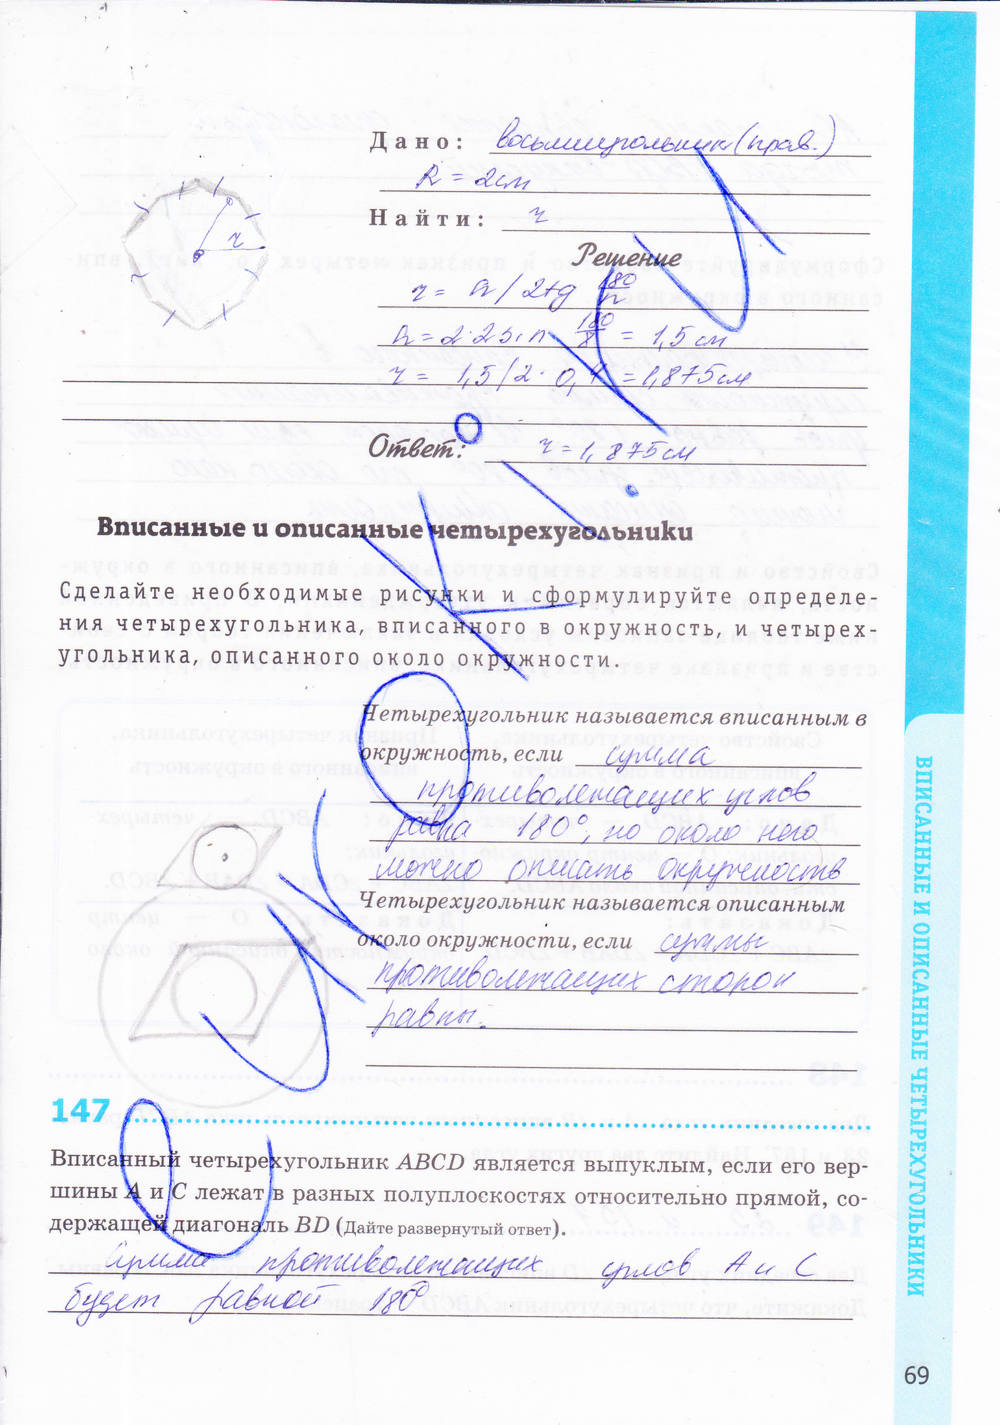 Дано: восьмиугольник (прав.)
R = 2см
Найти: r
r
Решение
r = a / 2tg 180/n
a = 2·2sin 180/8 = 1,5 см
r = 1,5/2 · 0,4 = 1,875 см
Ответ: r = 1,875 см
Вписанные и описанные четырехугольники
Сделайте необходимые рисунки и сформулируйте определе-
ния четырехугольника, вписанного в окружность, и четырех-
угольника, описанного около окружности.
Четырехугольник называется вписанным в
окружность, если сумма
противолежащих углов
равна 180°, но около него
можно описать окружность
Четырехугольник называется описанным
около окружности, если суммы
противолежащих сторон
равны.
147
Вписанный четырехугольник ABCD является выпуклым, если его вер-
шины A и C лежат в разных полуплоскостях относительно прямой, со-
держащей диагональ BD (Дайте развернутый ответ).
Сумма противолежащих углов А и С
будет равной 180°
ВПИСАННЫЕ И ОПИСАННЫЕ ЧЕТЫРЕХУГОЛЬНИКИ
69